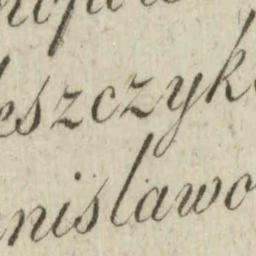 eszczyk
nislawo